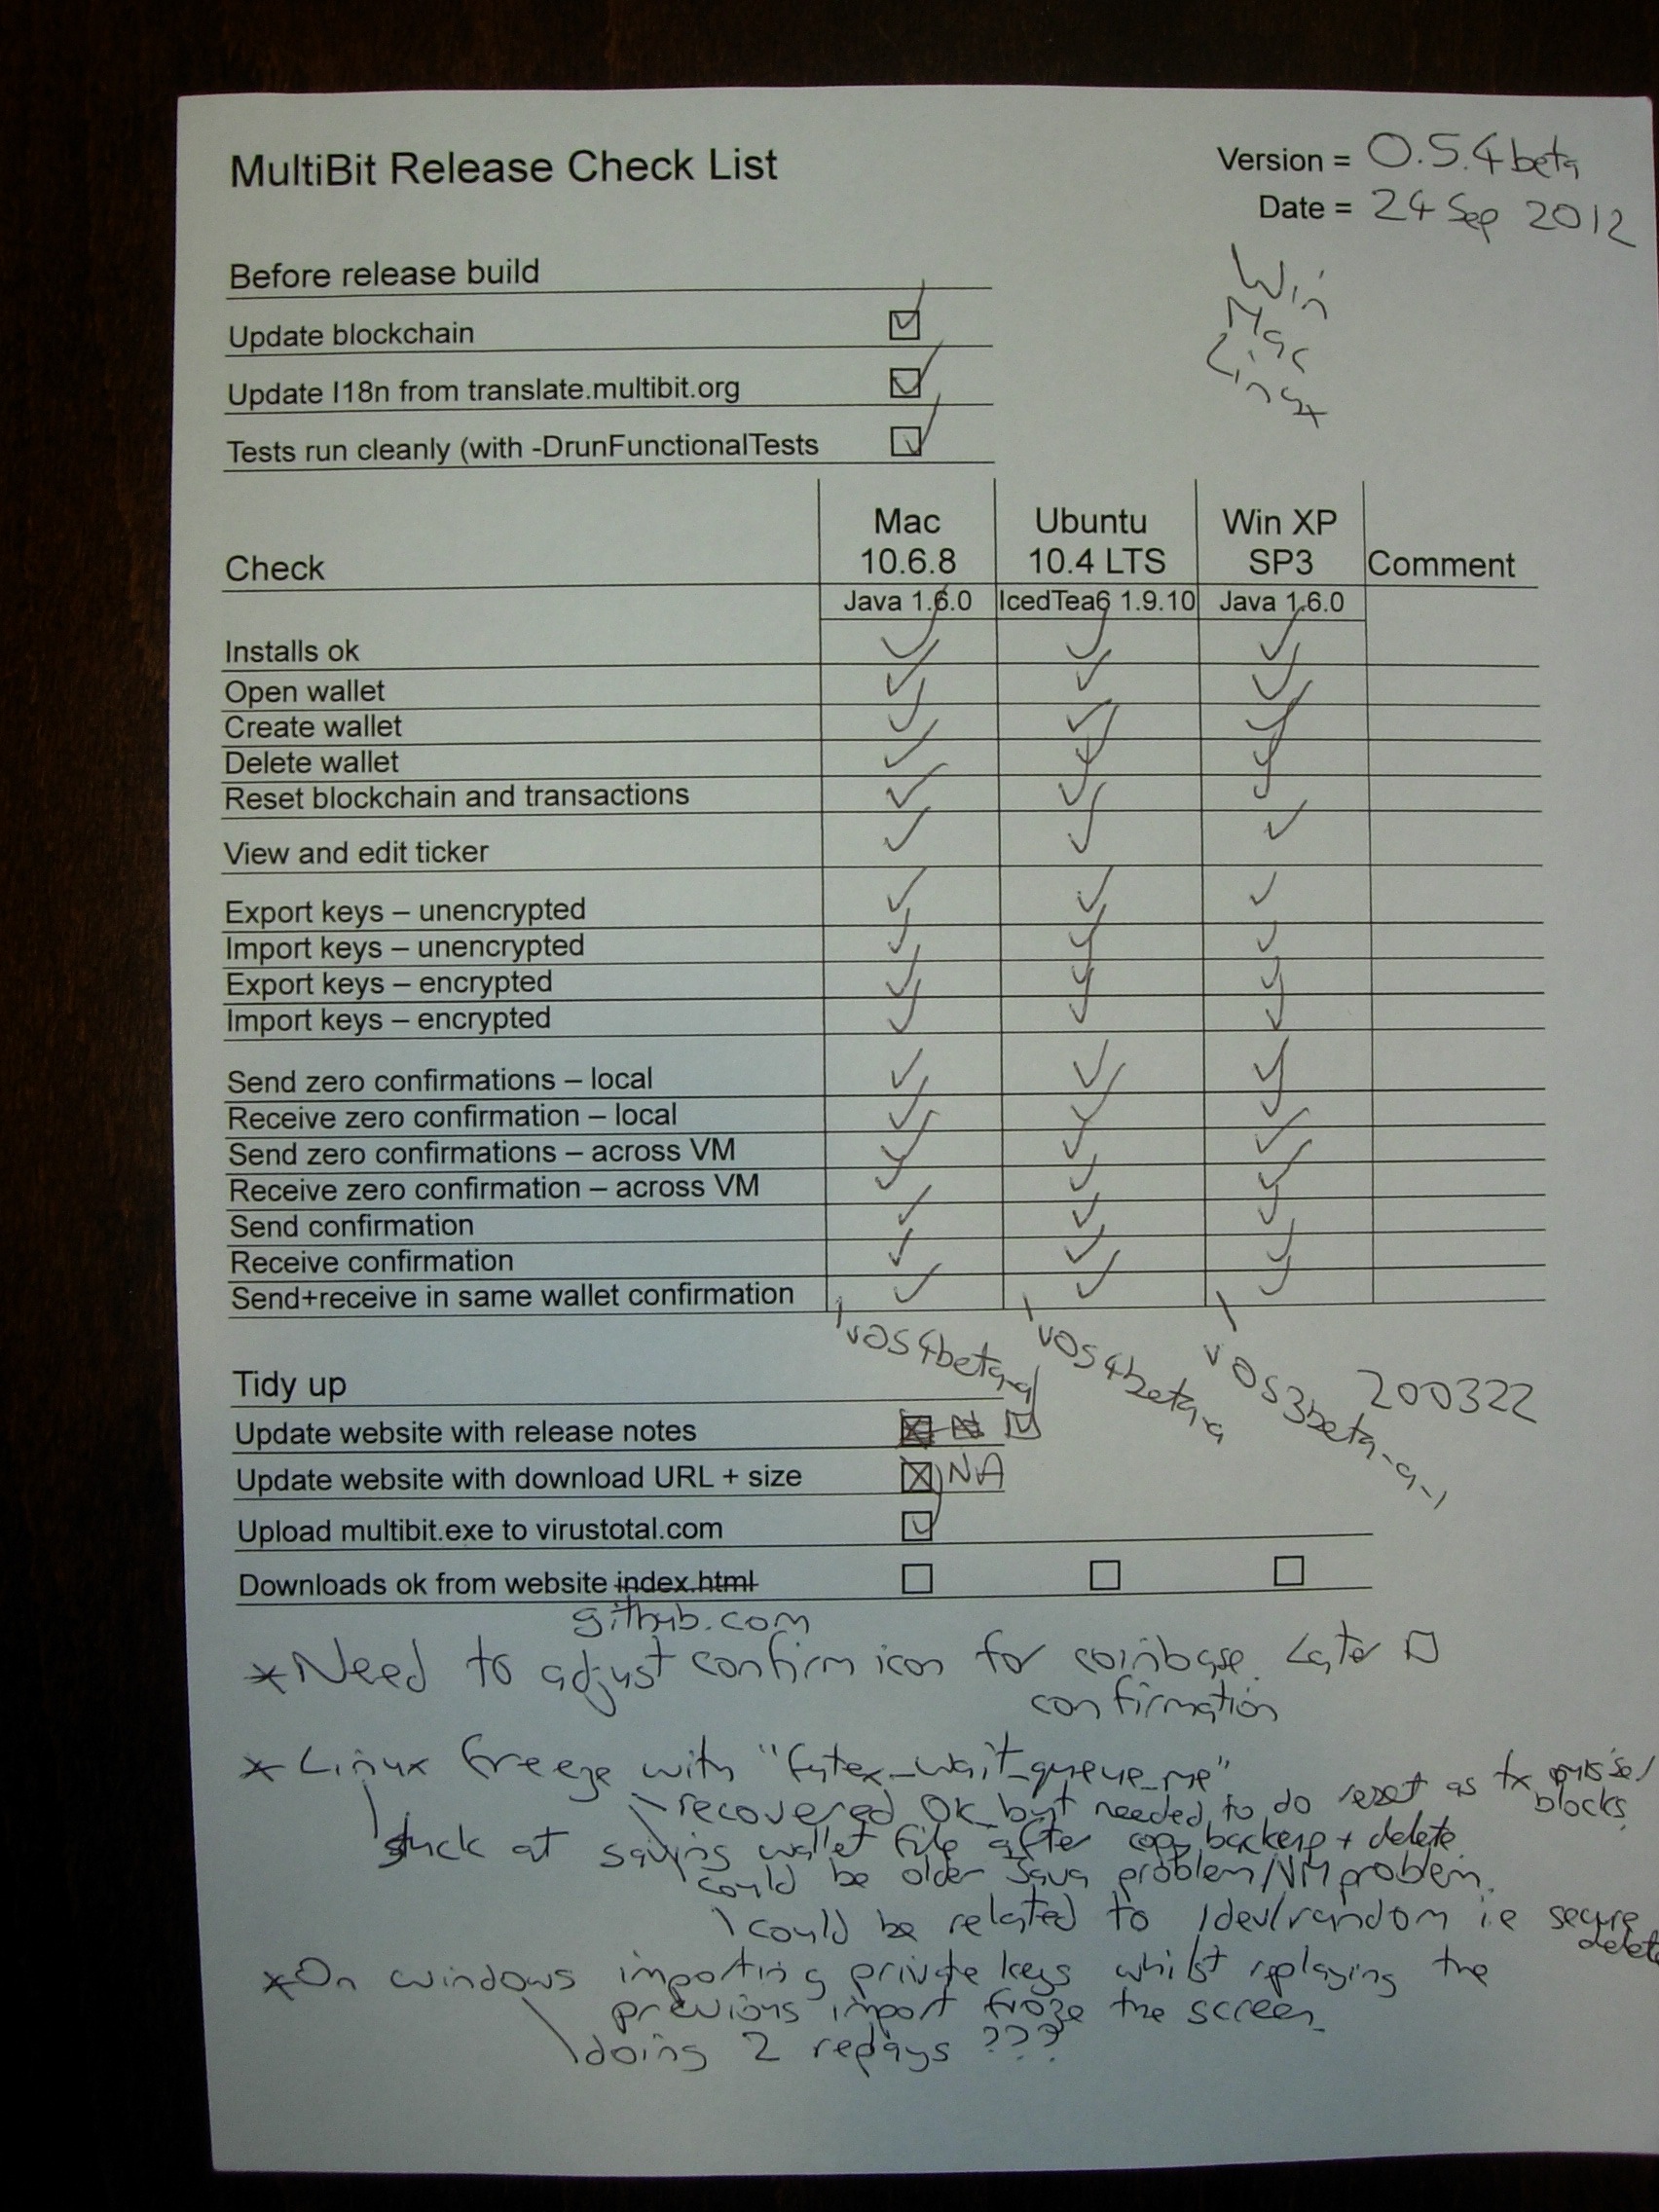 MultiBit Release Check List
Version = 0.5.4beta
Date = 24 Sep 2012
Win
Mac
Linux
Before release build
Update blockchain
Update I18n from translate.multibit.org
Tests run cleanly (with -DrunFunctionalTests
Check Mac 10.6.8 Ubuntu 10.4 LTS Win XP SP3 Comment
Java 1.6.0 IcedTea6 1.9.10 Java 1.6.0
Installs ok ✓ ✓ ✓
Open wallet ✓ ✓ ✓
Create wallet ✓ ✓ ✓
Delete wallet ✓ ✓ ✓
Reset blockchain and transactions ✓ ✓ ✓
View and edit ticker ✓ ✓ ✓
Export keys – unencrypted ✓ ✓ ✓
Import keys – unencrypted ✓ ✓ ✓
Export keys – encrypted ✓ ✓ ✓
Import keys – encrypted ✓ ✓ ✓
Send zero confirmations – local ✓ ✓ ✓
Receive zero confirmation – local ✓ ✓ ✓
Send zero confirmations – across VM ✓ ✓ ✓
Receive zero confirmation – across VM ✓ ✓ ✓
Send confirmation ✓ ✓ ✓
Receive confirmation ✓ ✓ ✓
Send+receive in same wallet confirmation ✓ ✓ ✓
v054beta-a v054beta-a v053beta-a-1 200322
Tidy up
Update website with release notes
Update website with download URL + size NA
Upload multibit.exe to virustotal.com
Downloads ok from website index.html
github.com
* Need to adjust confirm icon for coinbase. Later
confirmation
* Linux freeze with "futex_wait_queue_me"
recovered OK but needed to do reset as tx
blocks
stuck at saving wallet file after copy backup + delete
could be older Java problem/VM problem.
could be related to /dev/random ie secure
delete
* On windows importing private keys whilst replaying the
previous import froze the screen
doing 2 replays ???